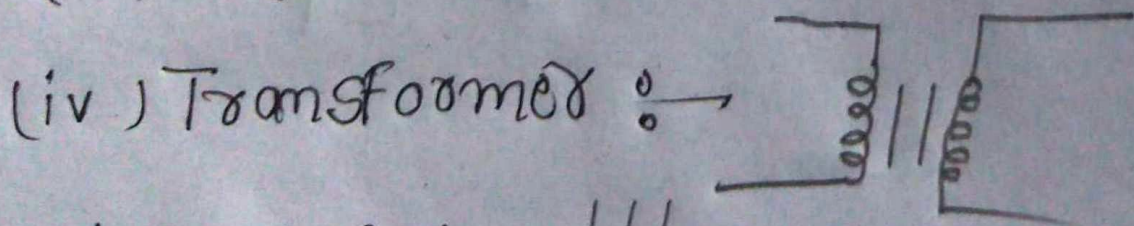 (iv) Transformer :→